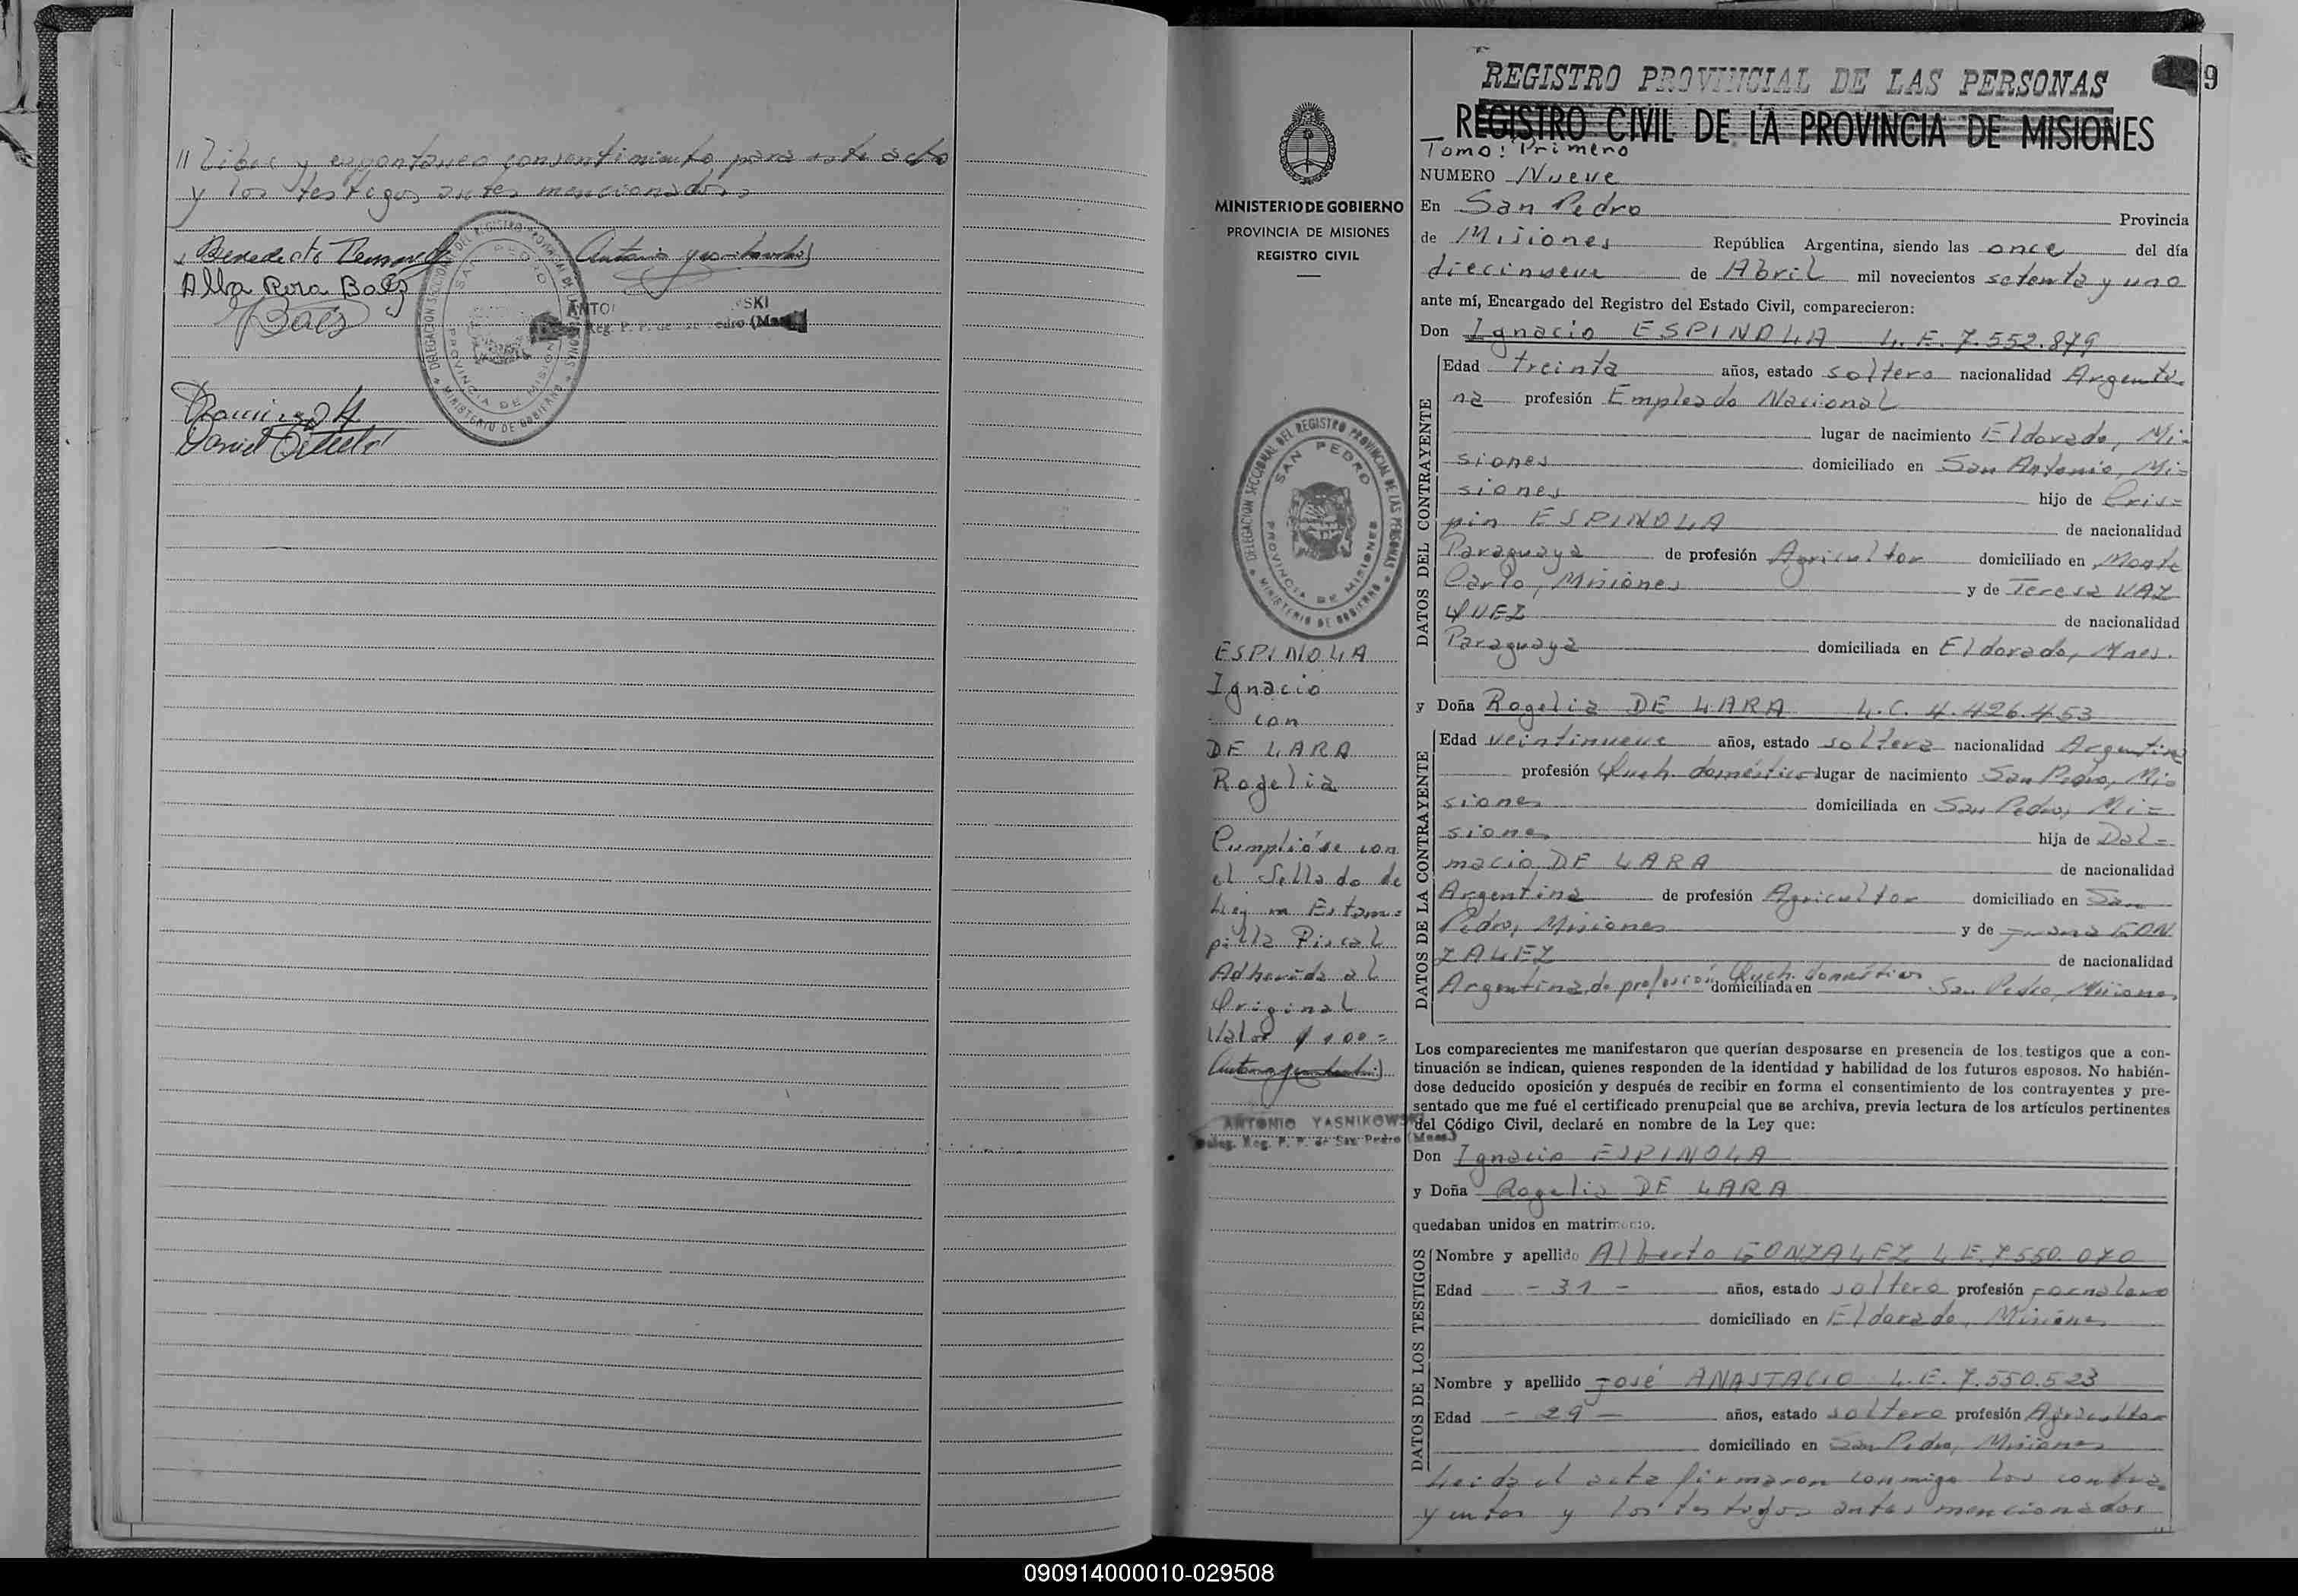 // libre y espontaneo consentimiento para este acto
y los testigos antes mencionados
Benedicto
Alba Rosa Baez
Baez
Ramirez
Daniel
DELEGACION SECCIONAL DEL REGISTRO PROVINCIAL DE LAS PERSONAS
SAN PEDRO
PROVINCIA DE MISIONES
MINISTERIO DE GOBIERNO
ANTO SKI
Reg. P. P. de San Pedro (Mnes.)
MINISTERIO DE GOBIERNO
PROVINCIA DE MISIONES
REGISTRO CIVIL
DELEGACION SECCIONAL DEL REGISTRO PROVINCIAL DE LAS PERSONAS
SAN PEDRO
PROVINCIA DE MISIONES
MINISTERIO DE GOBIERNO
ESPINOLA
Ignacio
con
DE LARA
Rogelia
Cumplióse con
el Sellado de
Ley en Estam=
pilla Fiscal
Adherida al
Original
Valor $ 100=
ANTONIO YASNIKOWSKI
Deleg. Reg. P. P. de San Pedro (Mnes.)
9
REGISTRO PROVINCIAL DE LAS PERSONAS
REGISTRO CIVIL DE LA PROVINCIA DE MISIONES
Tomo: Primero
NUMERO Nueve
En San Pedro Provincia
de Misiones República Argentina, siendo las once del día
diecinueve de Abril mil novecientos setenta y uno
ante mí, Encargado del Registro del Estado Civil, comparecieron:
Don Ignacio ESPINOLA L.E. 7.552.879
DATOS DEL CONTRAYENTE
Edad treinta años, estado soltero nacionalidad Argenti=
na profesión Empleado Nacional
lugar de nacimiento Eldorado, Mi=
siones domiciliado en San Antonio, Mi=
siones hijo de Cris=
pin ESPINOLA de nacionalidad
Paraguaya de profesión Agricultor domiciliado en Monte
Carlo, Misiones y de Teresa VAZ
QUEZ de nacionalidad
Paraguaya domiciliada en Eldorado, Mnes.
y Doña Rogelia DE LARA L.C. 4.426.453
DATOS DE LA CONTRAYENTE
Edad veintinueve años, estado soltera nacionalidad Argentina
profesión Queh. domésticos lugar de nacimiento San Pedro, Mi=
siones domiciliada en San Pedro, Mi=
siones hija de Dal=
macio DE LARA de nacionalidad
Argentina de profesión Agricultor domiciliado en San
Pedro, Misiones y de Juana GON
ZALEZ de nacionalidad
Argentina, de profesión Queh. domésticos domiciliada en San Pedro, Misiones
Los comparecientes me manifestaron que querían desposarse en presencia de los testigos que a con-
tinuación se indican, quienes responden de la identidad y habilidad de los futuros esposos. No habién-
dose deducido oposición y después de recibir en forma el consentimiento de los contrayentes y pre-
sentado que me fué el certificado prenupcial que se archiva, previa lectura de los artículos pertinentes
del Código Civil, declaré en nombre de la Ley que:
Don Ignacio ESPINOLA
y Doña Rogelia DE LARA
quedaban unidos en matrimonio.
DATOS DE LOS TESTIGOS
Nombre y apellido Alberto GONZALEZ L.E. 7.550.070
Edad - 31 - años, estado soltero profesión Jornalero
domiciliado en Eldorado, Misiones
Nombre y apellido José ANASTACIO L.E. 7.550.523
Edad - 29 - años, estado soltero profesión Agricultor
domiciliado en San Pedro, Misiones
Leida el acta firmaron conmigo los contra=
yentes y los testigos antes mencionados
090914000010-029508